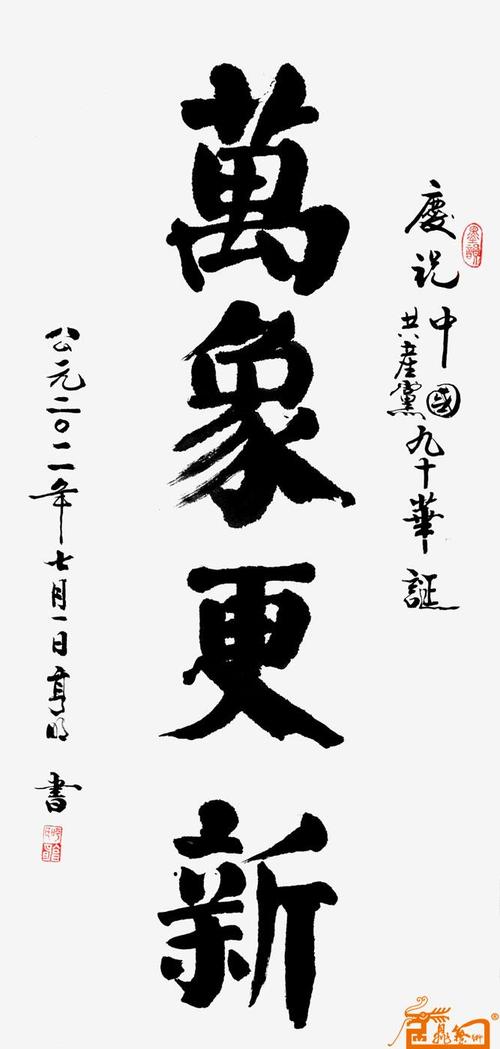 慶祝中國共產黨九十華誕
萬象更新
公元二〇一一年七月一日亨明書